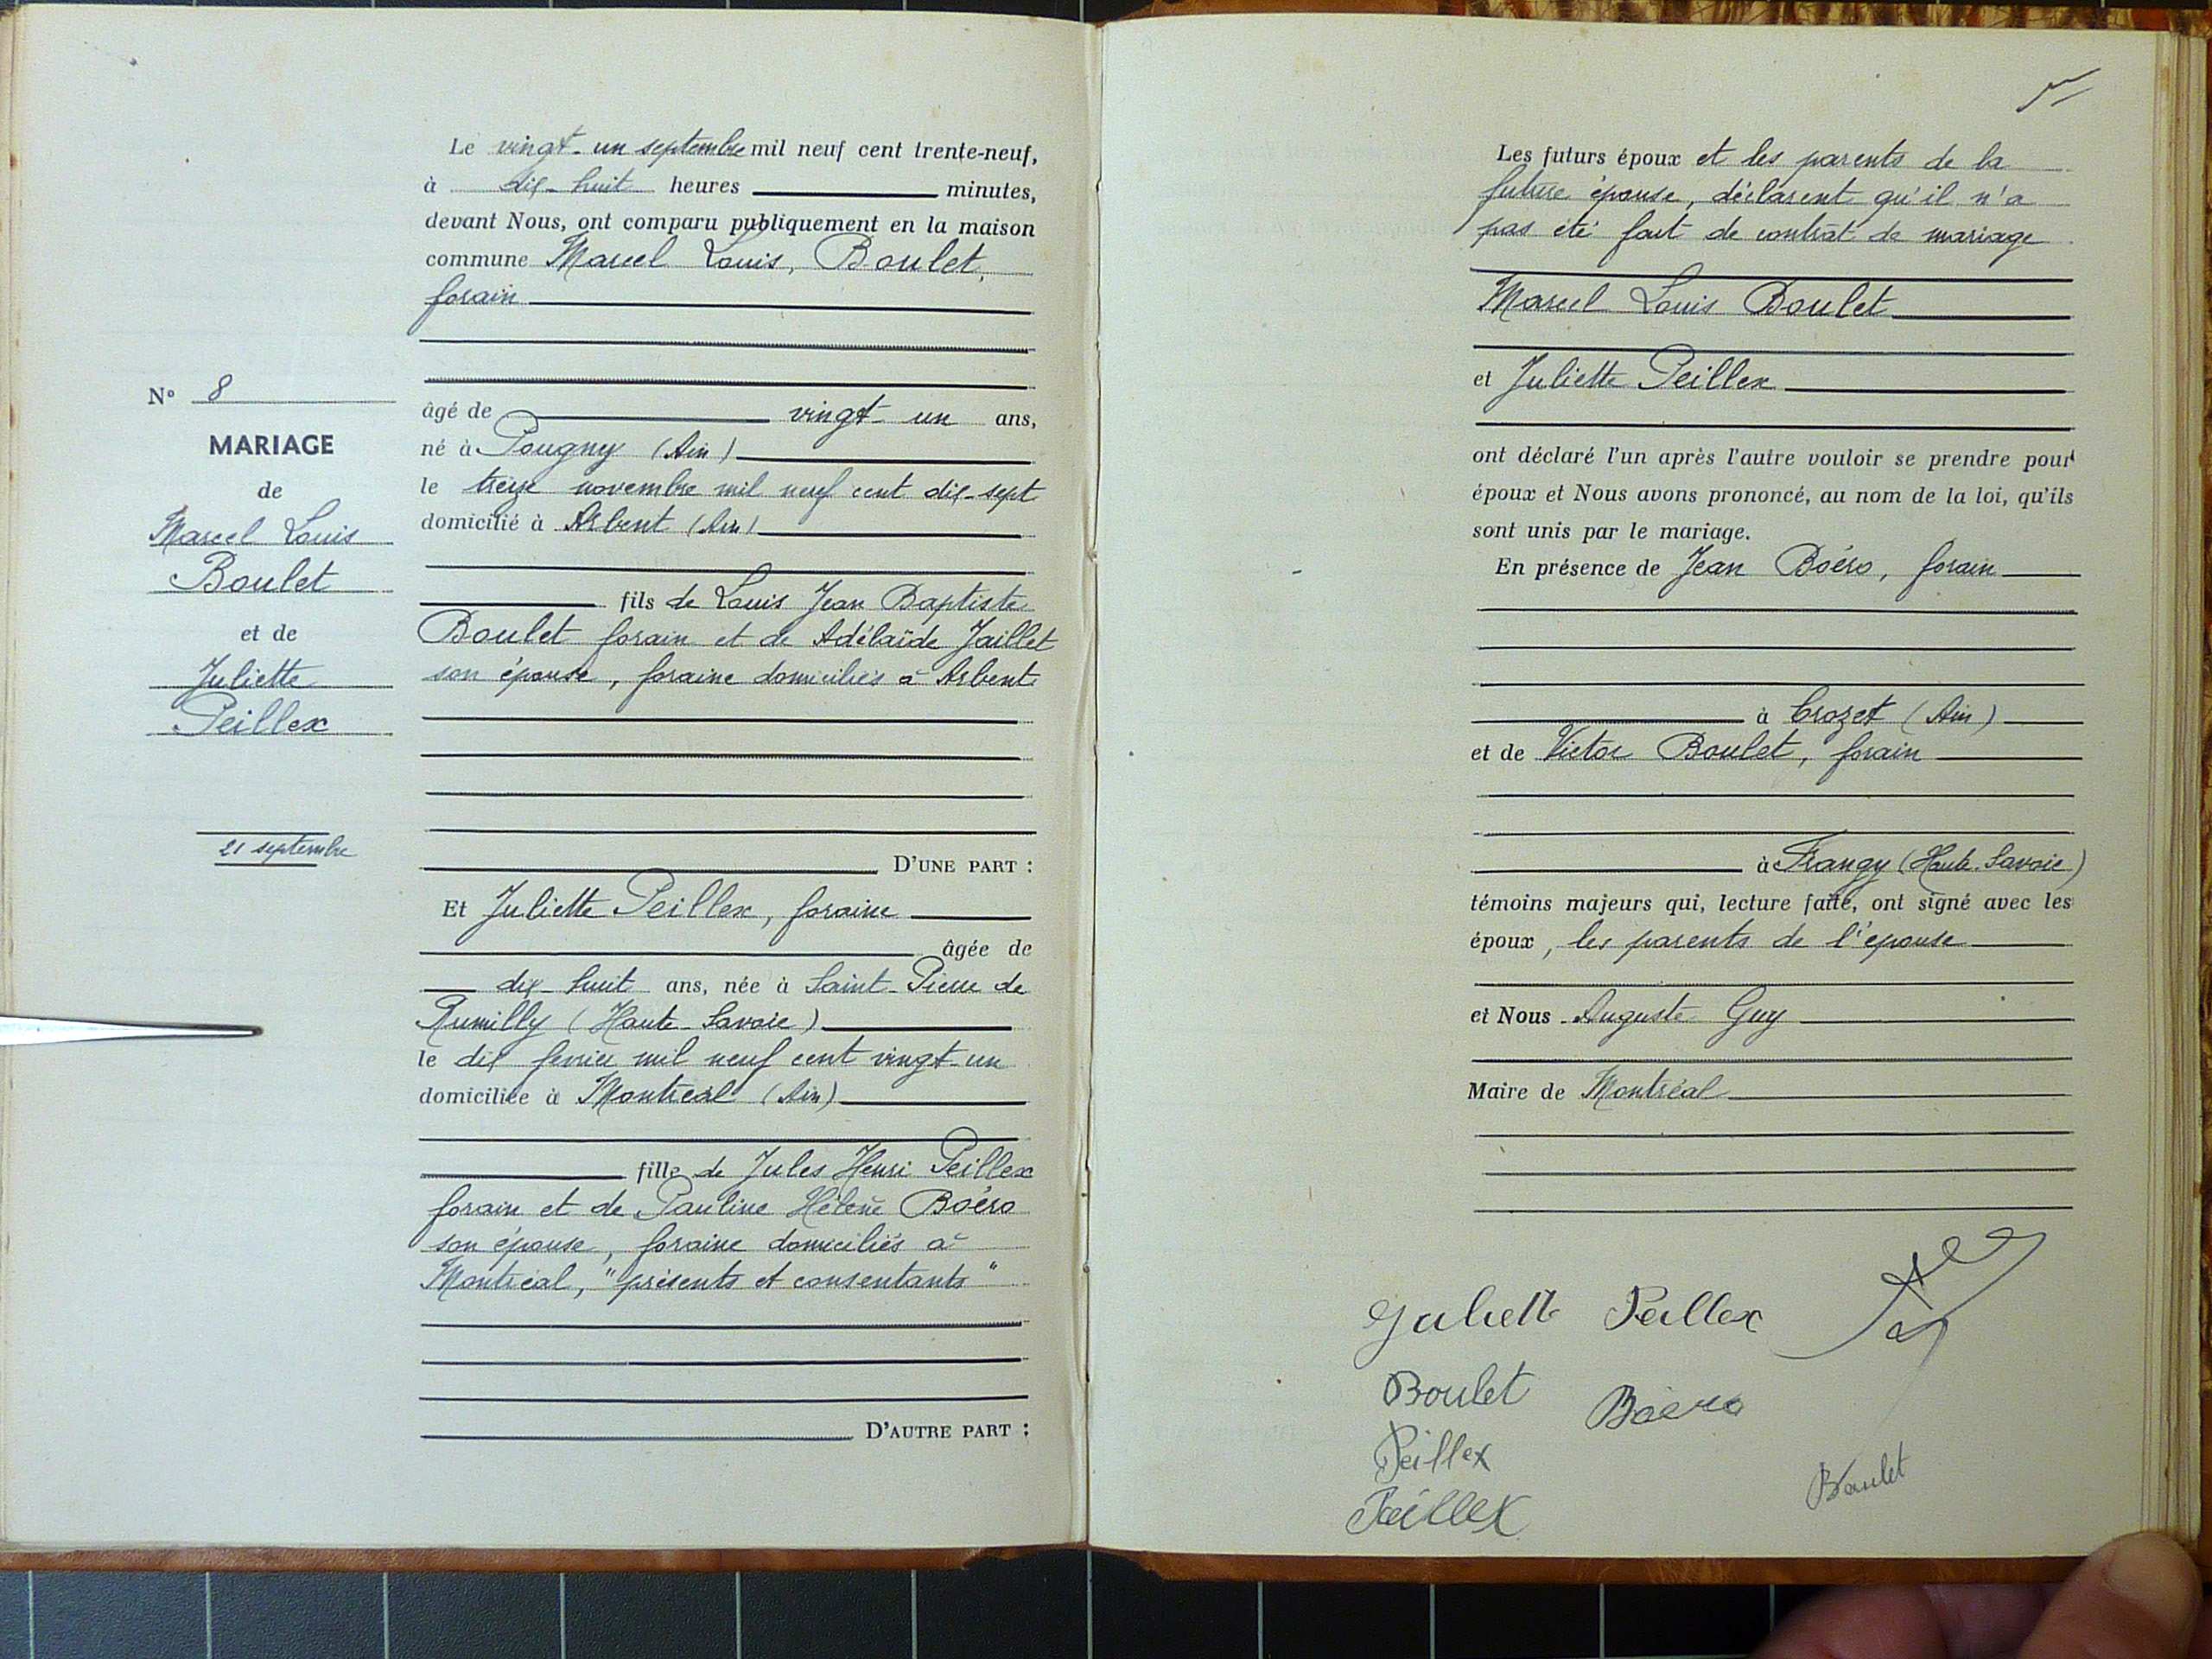 Le vingt-un septembre mil neuf cent trente-neuf,
à dix-huit heures minutes,
devant Nous, ont comparu publiquement en la maison
commune Marcel Louis, Boulet,
forain
N° 8
MARIAGE
de
Marcel Louis
Boulet
et de
Juliette
Peillex
21 septembre
âgé de vingt-un ans,
né à Pougny (Ain)
le treize novembre mil neuf cent dix-sept
domicilié à Arbent (Ain)
fils de Louis Jean Baptiste
Boulet forain et de Adélaïde Jaillet
son épouse, foraine domiciliés à Arbent
D'UNE PART :
Et Juliette Peillex, foraine
âgée de
dix-huit ans, née à Saint-Pierre de
Rumilly (Haute-Savoie)
le dix fevrier mil neuf cent vingt-un
domiciliée à Montréal (Ain)
fille de Jules Henri Peillex
forain et de Pauline Hélène Boéro
son épouse, foraine domiciliés à
Montréal, "présents et consentants"
D'AUTRE PART :
Les futurs époux et les parents de la
future épouse, déclarent qu'il n'a
pas été fait de contrat de mariage
Marcel Louis Boulet
et Juliette Peillex
ont déclaré l'un après l'autre vouloir se prendre pour
époux et Nous avons prononcé, au nom de la loi, qu'ils
sont unis par le mariage.
En présence de Jean Boéro, forain
à Crozet (Ain)
et de Victor Boulet, forain
à Frangy (Haute-Savoie)
témoins majeurs qui, lecture faite, ont signé avec les
époux, les parents de l'épouse
et Nous Auguste Guy
Maire de Montréal
Juliette Peillex
Boulet Boéro
Peillex
Peillex
Boulet